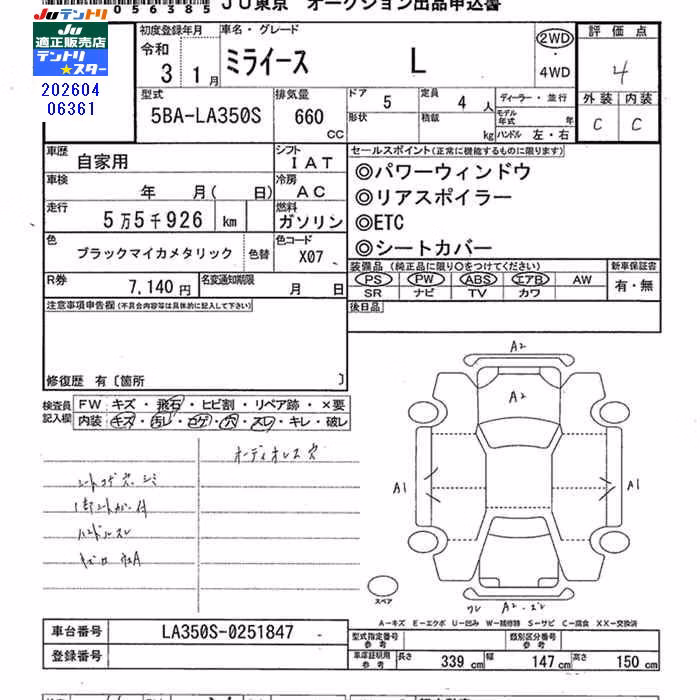 056385 JU東京 オークション出品申込書
Juテントリ
JU
適正販売店
テントリ
★スター
202604
06361
初度登録年月
令和
3 1月
車名・グレード
ミライース L
2WD
・
4WD
評価点
4
外装 内装
C C
型式
5BA-LA350S
排気量
660
CC
ドア 5
定員 4 人
形状
積載 kg
ディーラー・並行
モデル年式 年
ハンドル 左・右
車歴
自家用
シフト
IAT
車検
年 月( 日)
冷房
AC
走行
5万5千926 km
燃料
ガソリン
色
ブラックマイカメタリック
色替
色コード
X07
R券
7,140円
名変通知期限
月 日
セールスポイント(正常に機能するものに限ります)
◎パワーウィンドウ
◎リアスポイラー
◎ETC
◎シートカバー
装備品(純正品に限り○をつけてください)
PS PW ABS エアB AW
SR ナビ TV カワ
新車保証書
有・無
後日品
注意事項申告欄(不具合内容等は具体的に記入して下さい)
修復歴 有〔箇所 〕
検査員
記入欄
FW キズ・飛石・ヒビ割・リペア跡・×要
内装 キズ・汚レ・コゲ・穴・スレ・キレ・破レ
オーディオレス穴
シートコゲ穴・シミ
ハンドルスレ
A2
A2
A1
A1
スペア
ワレ A2・ズレ
A-キズ E-エクボ U-凹み W-補修跡 S-サビ C-腐食 XX-交換済
車台番号
LA350S-0251847
登録番号
型式指定番号
参考
類別区分番号
参考
車庫証明用
参考
長さ 339 cm 幅 147 cm 高さ 150 cm